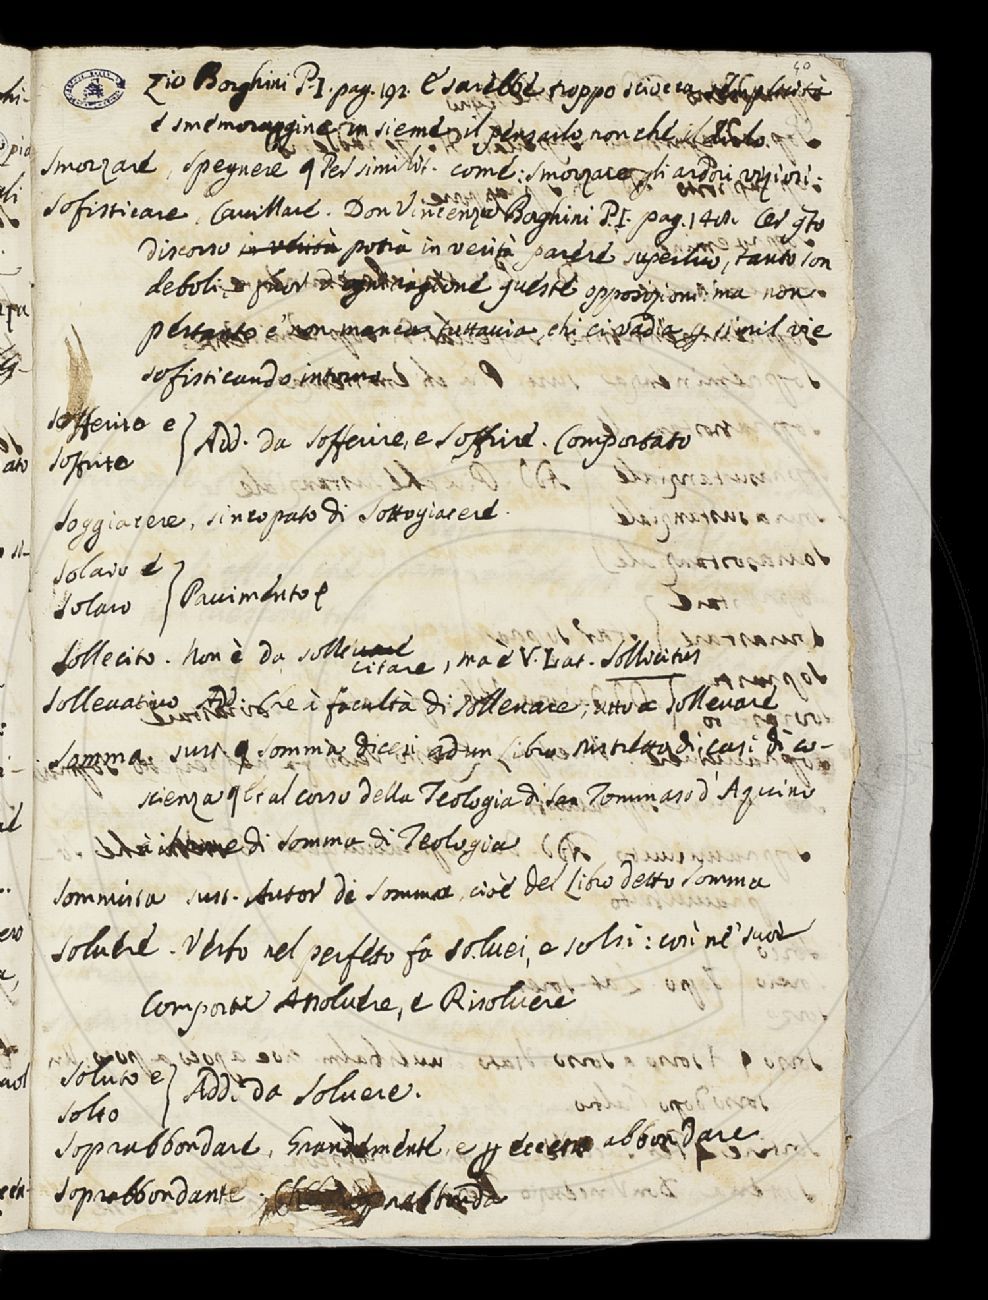 zio Borghini P. I. pag. 192. E sarebbe troppo sciocca semplicità
e smemoraggine insieme il pensarlo non che il dirlo.
Smorzare, spegnere q Per similit. come: smorzare gli ardori viziosi.
Sofisticare, Cavillare. Don Vincenzo Borghini P. I. pag. 148. Ces q̃to
discorso in verità potrà in verità parere superfluo, tanto son
deboli, e fuor d'ogni ragione queste opposizioni: ma non
pertanto e' non manca tuttavia, chi ci vadia p simil vie
sofisticando intorno
Sofferito e
Soffrito } Add. da Sofferire, e Soffrire. Comportato
Soggiacere, sincopato di Sottogiacere.
Solaio e
Solaro } Pavimento
Sollecito. Non è da sollevare
citare, ma è V. Lat. Sollicitus
Sollevativo Ad. Che à facultà di sollevare, atto a sollevare
Somma. sust. q Somma dicesi ad un Libro ristretto di casi di co-
scienza q Et al corso della Teologia di San Tommaso d'Aquino
à il nome di Somma di Teologia
Sommista sust. Autor di Somma, cioè del Libro detto Somma
Solvere. Verbo nel perfetto fa solvei, e solsi: così ne' suoi
Composti Assolvere, e Risolvere
Soluto e
Solto } Add. da Solvere.
Soprabbondare, Grandemente, e p eccesso abbondare
Soprabbondante, Che soprabbonda